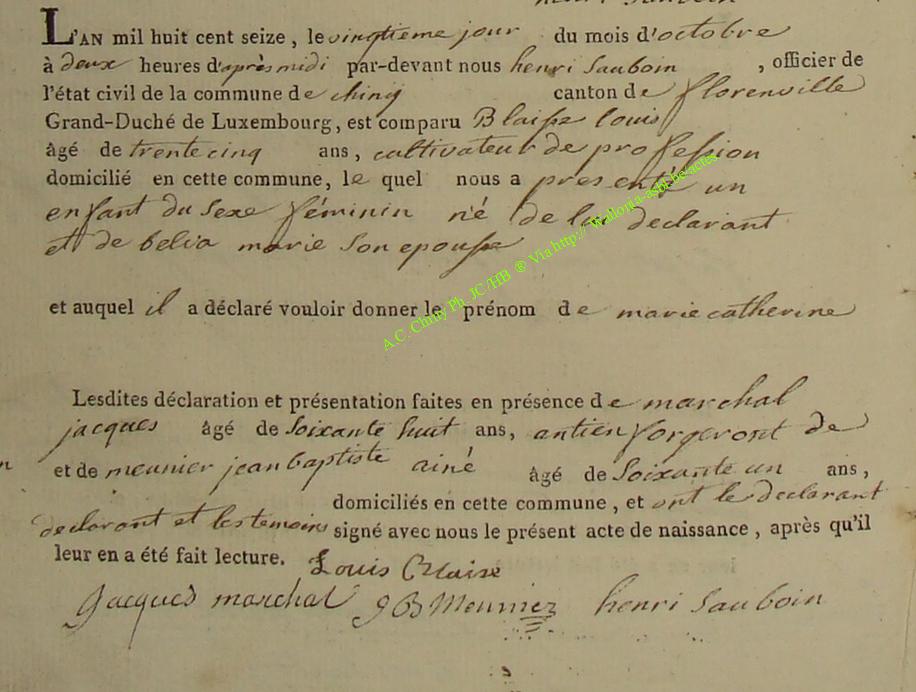 henri Sauboin
L'AN mil huit cent seize, le vingtieme jour du mois d'octobre
à deux heures d'après midi par-devant nous henri Sauboin, officier de
l'état civil de la commune de chiny canton de florenville
Grand-Duché de Luxembourg, est comparu Blaisse louis
âgé de trente cinq ans, cultivateur de profession
domicilié en cette commune, le quel nous a presenté un
enfant du sexe féminin né de lui declarant
et de belia marie son epouse
et auquel il a déclaré vouloir donner le prénom de marie catherine
Lesdites déclaration et présentation faites en présence de marchal
jacques âgé de soixante huit ans, antien forgeront de
et de meunier jean baptiste ainé âgé de soixante un ans,
domiciliés en cette commune, et ont le declarant
declarant et les temoins signé avec nous le présent acte de naissance, après qu'il
leur en a été fait lecture. Louis Blaise
Jacques marchal JB Meunier henri Sauboin
A.C. Chiny Ph JC/HB ® Via http://Wallonia-asbl-be-actes